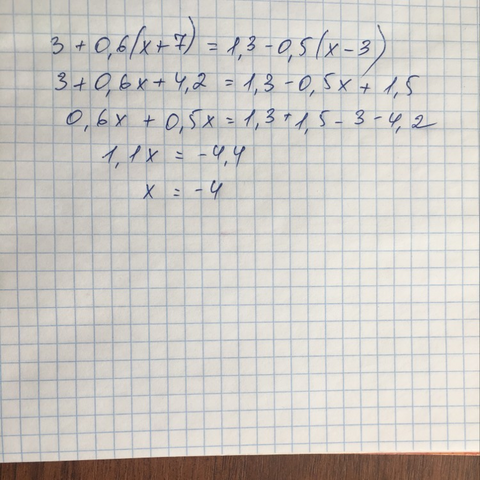 3 + 0,6(x+7) = 1,3 - 0,5(x-3)
3 + 0,6x + 4,2 = 1,3 - 0,5x + 1,5
0,6x + 0,5x = 1,3 + 1,5 - 3 - 4,2
1,1x = -4,4
x = -4